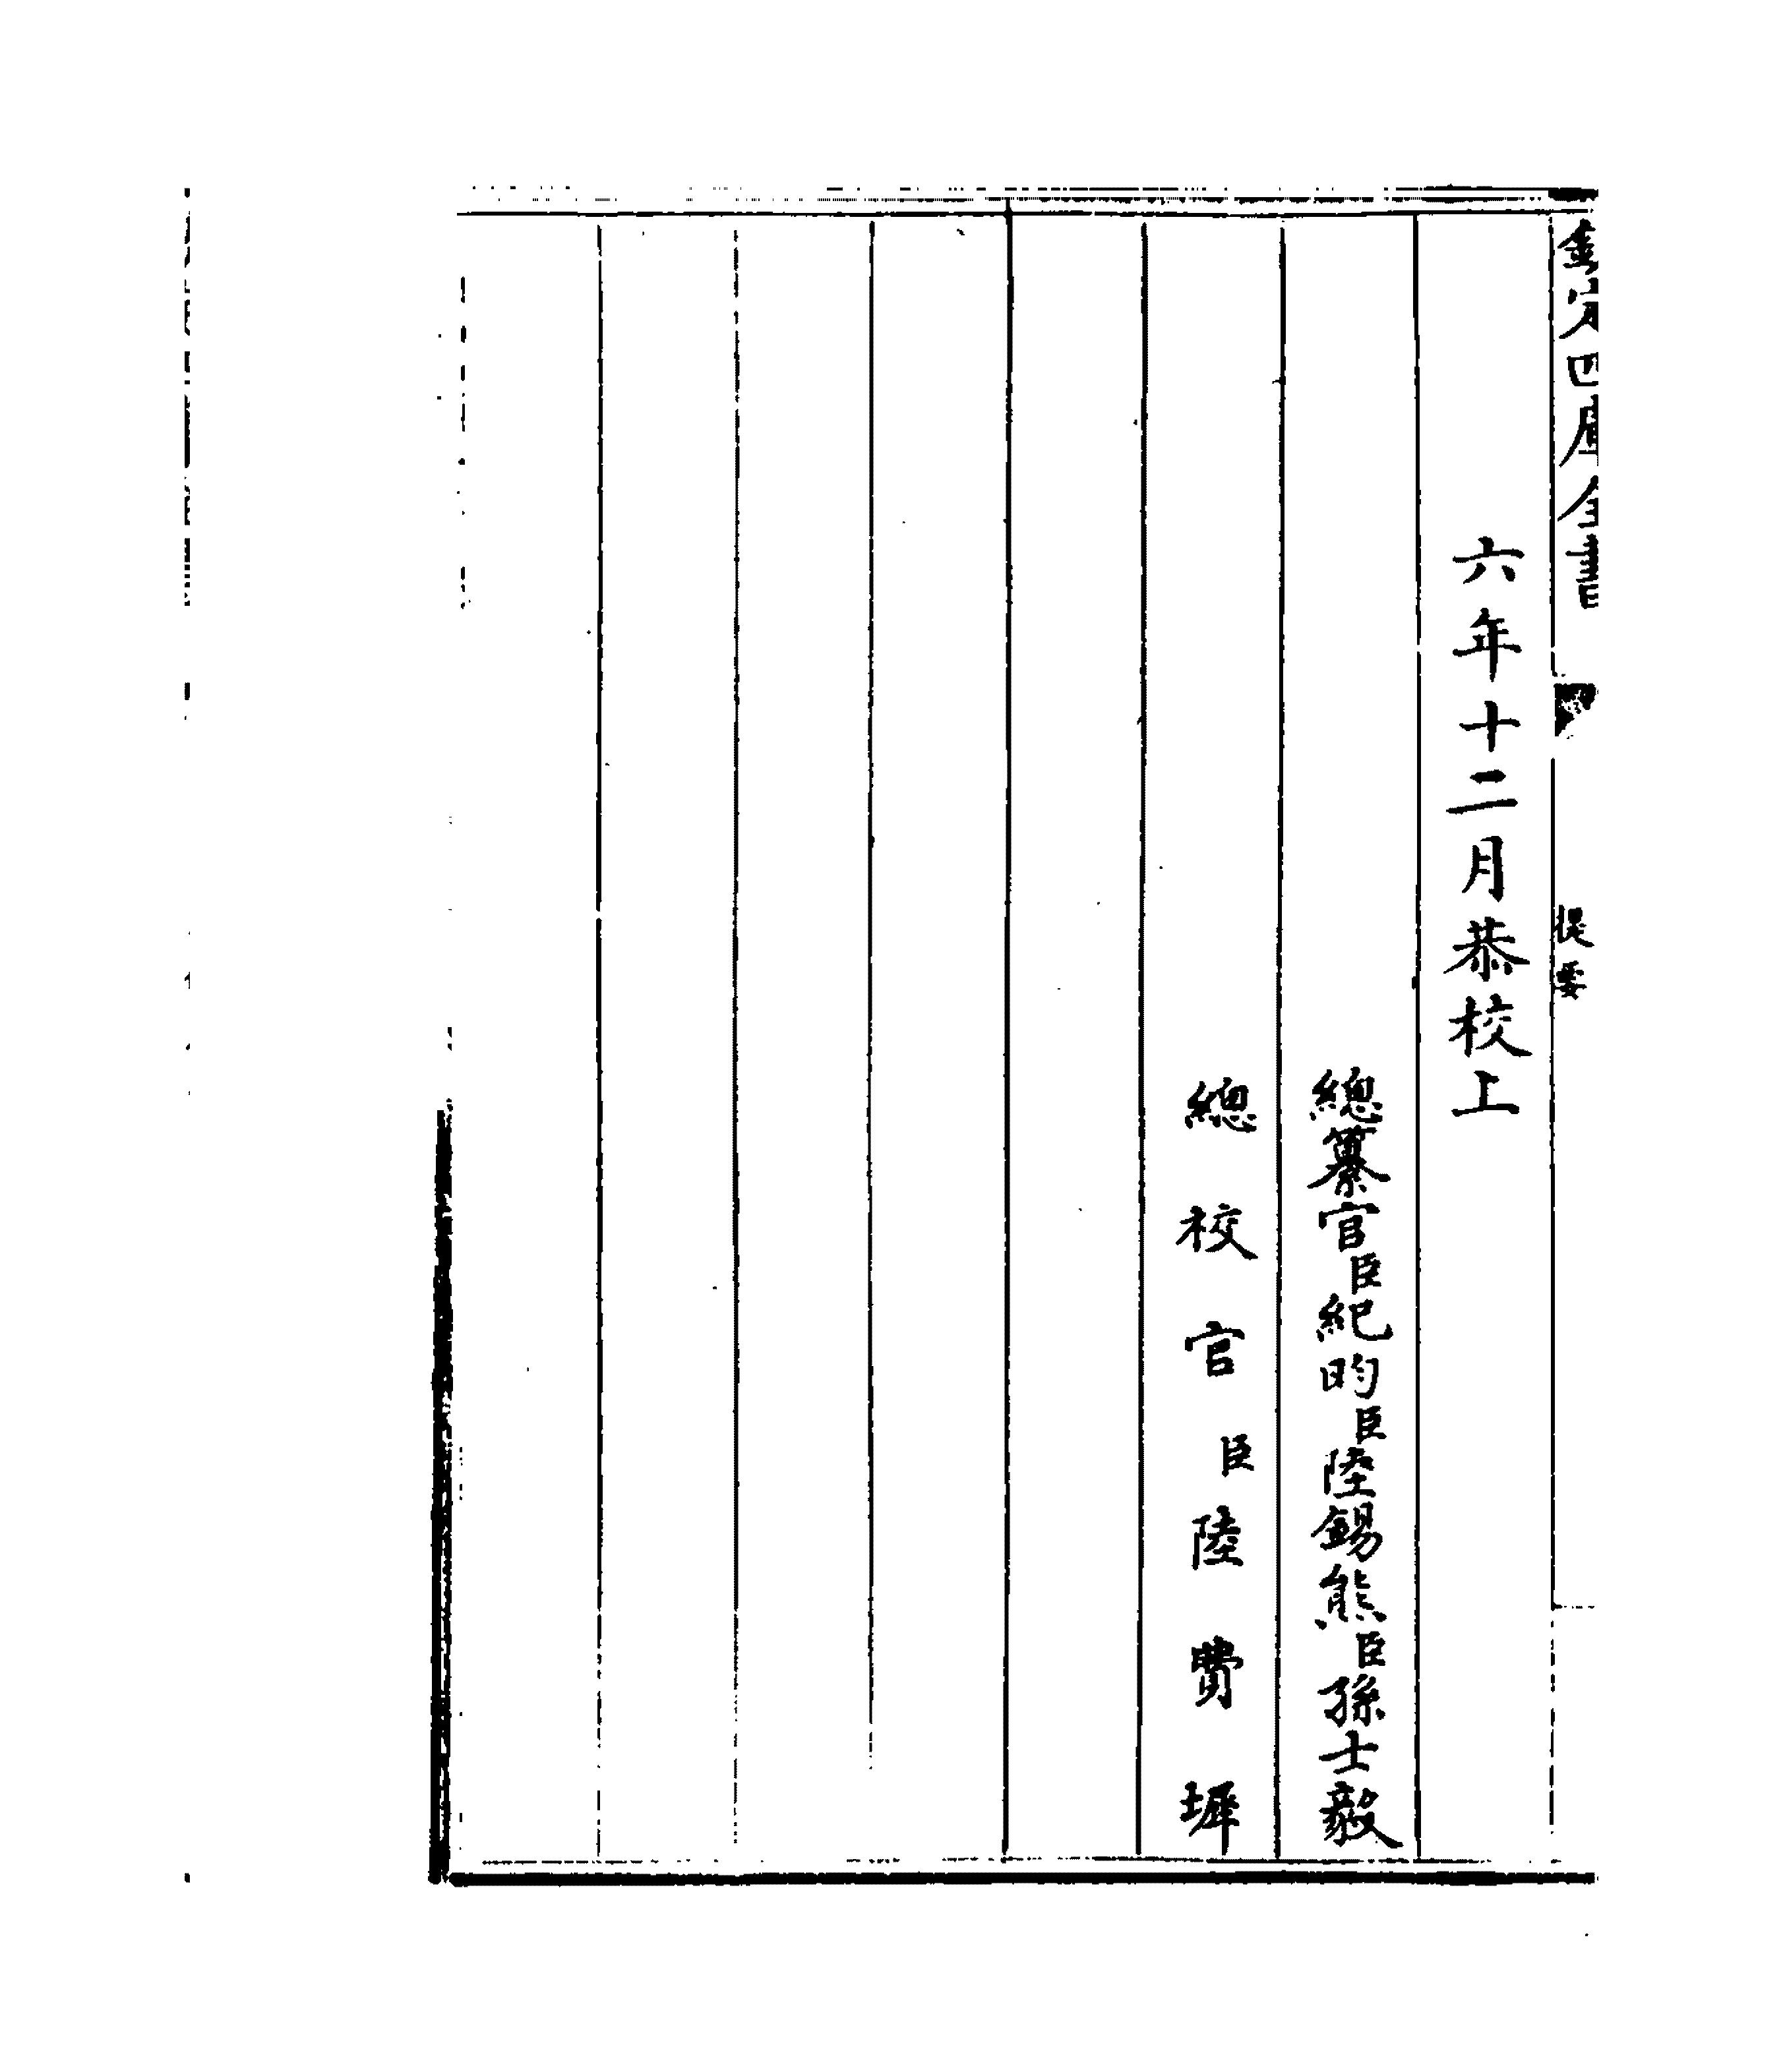 欽定四庫全書
提要
六年十二月恭校上
總纂官臣紀昀臣陸錫熊臣孫士毅
總校官臣陸費墀